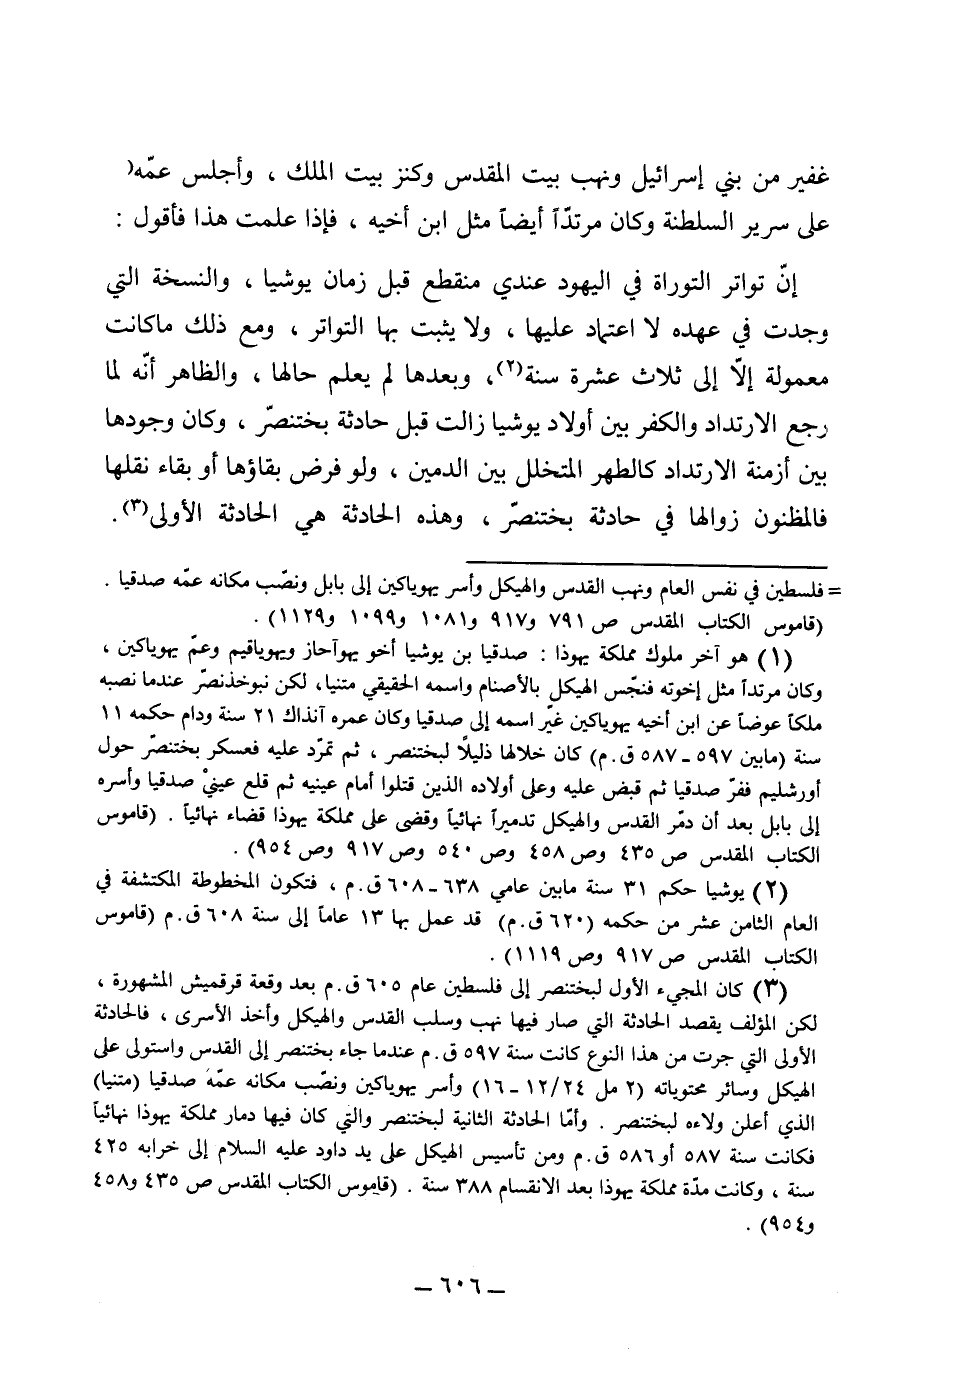 غفير من بني إسرائيل ونهب بيت المقدس وكنز بيت الملك ، وأجلس عمّه(
على سرير السلطنة وكان مرتدّاً أيضاً مثل ابن أخيه ، فإذا علمت هذا فأقول :
إنّ تواتر التوراة في اليهود عندي منقطع قبل زمان يوشيا ، والنسخة التي
وجدت في عهده لا اعتماد عليها ، ولا يثبت بها التواتر ، ومع ذلك ماكانت
معمولة إلّا إلى ثلاث عشرة سنة(٢)، وبعدها لم يعلم حالها ، والظاهر أنّه لما
رجع الارتداد والكفر بين أولاد يوشيا زالت قبل حادثة بختنصرّ ، وكان وجودها
بين أزمنة الارتداد كالطهر المتخلل بين الدمين ، ولو فرض بقاؤها أو بقاء نقلها
فالمظنون زوالها في حادثة بختنصرّ ، وهذه الحادثة هي الحادثة الأولى(٣).
= فلسطين في نفس العام ونهب القدس والهيكل وأسر يهوياكين إلى بابل ونصّب مكانه عمّه صدقيا .
(قاموس الكتاب المقدس ص ٧٩١ و٩١٧ و١٠٨١ و١٠٩٩ و١١٢٩) .
(١) هو آخر ملوك مملكة يهوذا : صدقيا بن يوشيا أخو يهوآحاز ويهوياقيم وعمّ يهوياكين ،
وكان مرتداً مثل إخوته فنجّس الهيكل بالأصنام واسمه الحقيقي متنيا، لكن نبوخذنصرّ عندما نصبه
ملكاً عوضاً عن ابن أخيه يهوياكين غيّر اسمه إلى صدقيا وكان عمره آنذاك ٢١ سنة ودام حكمه ١١
سنة (مابين ٥٩٧ ـ ٥٨٧ ق.م) كان خلالها ذليلًا لبختنصر ، ثم تمرّد عليه فعسكر بختنصرّ حول
أورشليم ففرّ صدقيا ثم قبض عليه وعلى أولاده الذين قتلوا أمام عينيه ثم قلع عينيْ صدقيا وأسره
إلى بابل بعد أن دمّر القدس والهيكل تدميراً نهائياً وقضى على مملكة يهوذا قضاء نهائياً . (قاموس
الكتاب المقدس ص ٤٣٥ وص ٤٥٨ وص ٥٤٠ وص ٩١٧ وص ٩٥٤) .
(٢) يوشيا حكم ٣١ سنة مابين عامي ٦٣٨ ـ ٦٠٨ ق.م ، فتكون المخطوطة المكتشفة في
العام الثامن عشر من حكمه (٦٢٠ ق.م) قد عمل بها ١٣ عاماً إلى سنة ٦٠٨ ق.م (قاموس
الكتاب المقدس ص ٩١٧ وص ١١١٩) .
(٣) كان المجيء الأول لبختنصر إلى فلسطين عام ٦٠٥ ق.م بعد وقعة قرقميش المشهورة ،
لكن المؤلف يقصد الحادثة التي صار فيها نهب وسلب القدس والهيكل وأخذ الأسرى ، فالحادثة
الأولى التي جرت من هذا النوع كانت سنة ٥٩٧ ق.م عندما جاء بختنصر إلى القدس واستولى على
الهيكل وسائر محتوياته (٢ مل ١٢/٢٤ ـ ١٦) وأسر يهوياكين ونصّب مكانه عمّه صدقيا (متنيا)
الذي أعلن ولاءه لبختنصر . وأمّا الحادثة الثانية لبختنصر والتي كان فيها دمار مملكة يهوذا نهائياً
فكانت سنة ٥٨٧ أو ٥٨٦ ق.م ومن تأسيس الهيكل على يد داود عليه السلام إلى خرابه ٤٢٥
سنة ، وكانت مدّة مملكة يهوذا بعد الانقسام ٣٨٨ سنة . (قاموس الكتاب المقدس ص ٤٣٥ و٤٥٨
و٩٥٤) .
ـ ٦٠٦ ـ